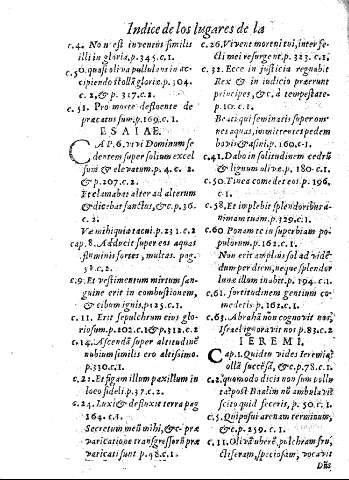 Indice de los lugares de la
c.4. Non est inventus similis
illi in gloria, p.345. c.1.
c.50. quasi oliva pullulans in ac-
cipiendo stollã gloriæ. p.304.
c.2, & p.317. c.2.
c.51. Pro morte defluente de
præcatus sum, p.169. c.1.
ESAIAE.
CAP.6. vivi Dominum se
dentem super solium excel
sum & elevatum. p.4. c. 2.
& p.207. c.2.
Et clamabat alter ad alterum
& dicebat sanctus, &c. p.36.
c. 2.
Væ mihi quia tacui. p.231. c.2
cap.8. Adducit super eos aquas
fluminis fortes, multas. pag.
c.2.
c.9. Et vestimentum mixtum san-
guine erit in combustionem,
& cibum ignis, p.125. c.1.
c.11. Erit sepulchrum eius glo-
riosum. p.102. c.1 & p.312. c.2
c.14. Ascendã super altitudinẽ
nubium similis ero altissimo.
p.310. c.1.
c.22. Et figam illum paxillum in
loco fideli. p.37. c.2.
c.24. Luxit & defluxit terra pag
164. c.1.
Secretum meũ mihi, & c præ
varicatione transgressorũ præ
varicati sunt p.98. c.1.
c.26. Vivent mortui tui, interfe-
cti mei resurgent. p. 323. c.2.
c.32. Ecce in justicia regnabit
Rex & in iudicio præerunt
principes, & c. à tempestate.
p.10. c.1.
Beati qui seminatis super om-
nes aquas, immittentes pedem
bovis & asini. p.160. c.1.
c.41. Dabo in solitudinem cedrũ
& lignum olivæ. p. 180. c.1.
c.50. Tinea comedet eos. p. 196.
c.1.
c.58. Et implebit splendoribus a-
nimam tuam. p.329. c.1.
c.60 Ponam te in superbiam po-
pulorum. p.162. c.1.
Non erit amplius sol ad vidẽ
dum per diem, neque splendor
lunæ illum inabit. p.194. c.1.
c.61. fortitudinem gentium co-
medetis. p.162. c.1.
c.63. Abrahã non cognovit nos,
Israel ignoravit nos p.83. c.2
IEREMI.
Cap.1. Quid tu vides Ieremia?
ollã succẽsã, & c. p.78. c.1.
c.2. quomodo dicis non sum pollu
ta? post Baalim nũ ambulavi?
scito quid feceris, p. 50. c.1.
c.5. Qui posui arenam terminum,
& c. p.259. c.1.
c.11. Olivã uberẽ, pulchram frũ,
ctiferam, speciosam, vocavit
Dñs